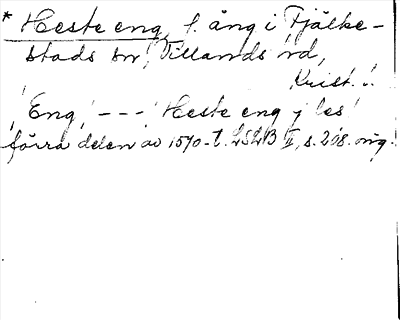 * Heste eng, f. äng i Fjälke-
stads sn, Villands hd,
Krist. l.
"Eng, --- Heste eng j les"
förra delen av 1570-t. LSLB II, s. 208. mg.